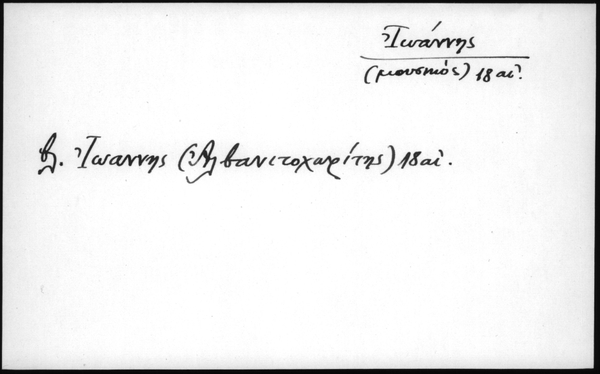 Ἰωάννης
(μουσικός) 18 αἰ.
βλ. Ἰωαννης (Ἀλβανιτοχωρίτης) 18 αἰ.